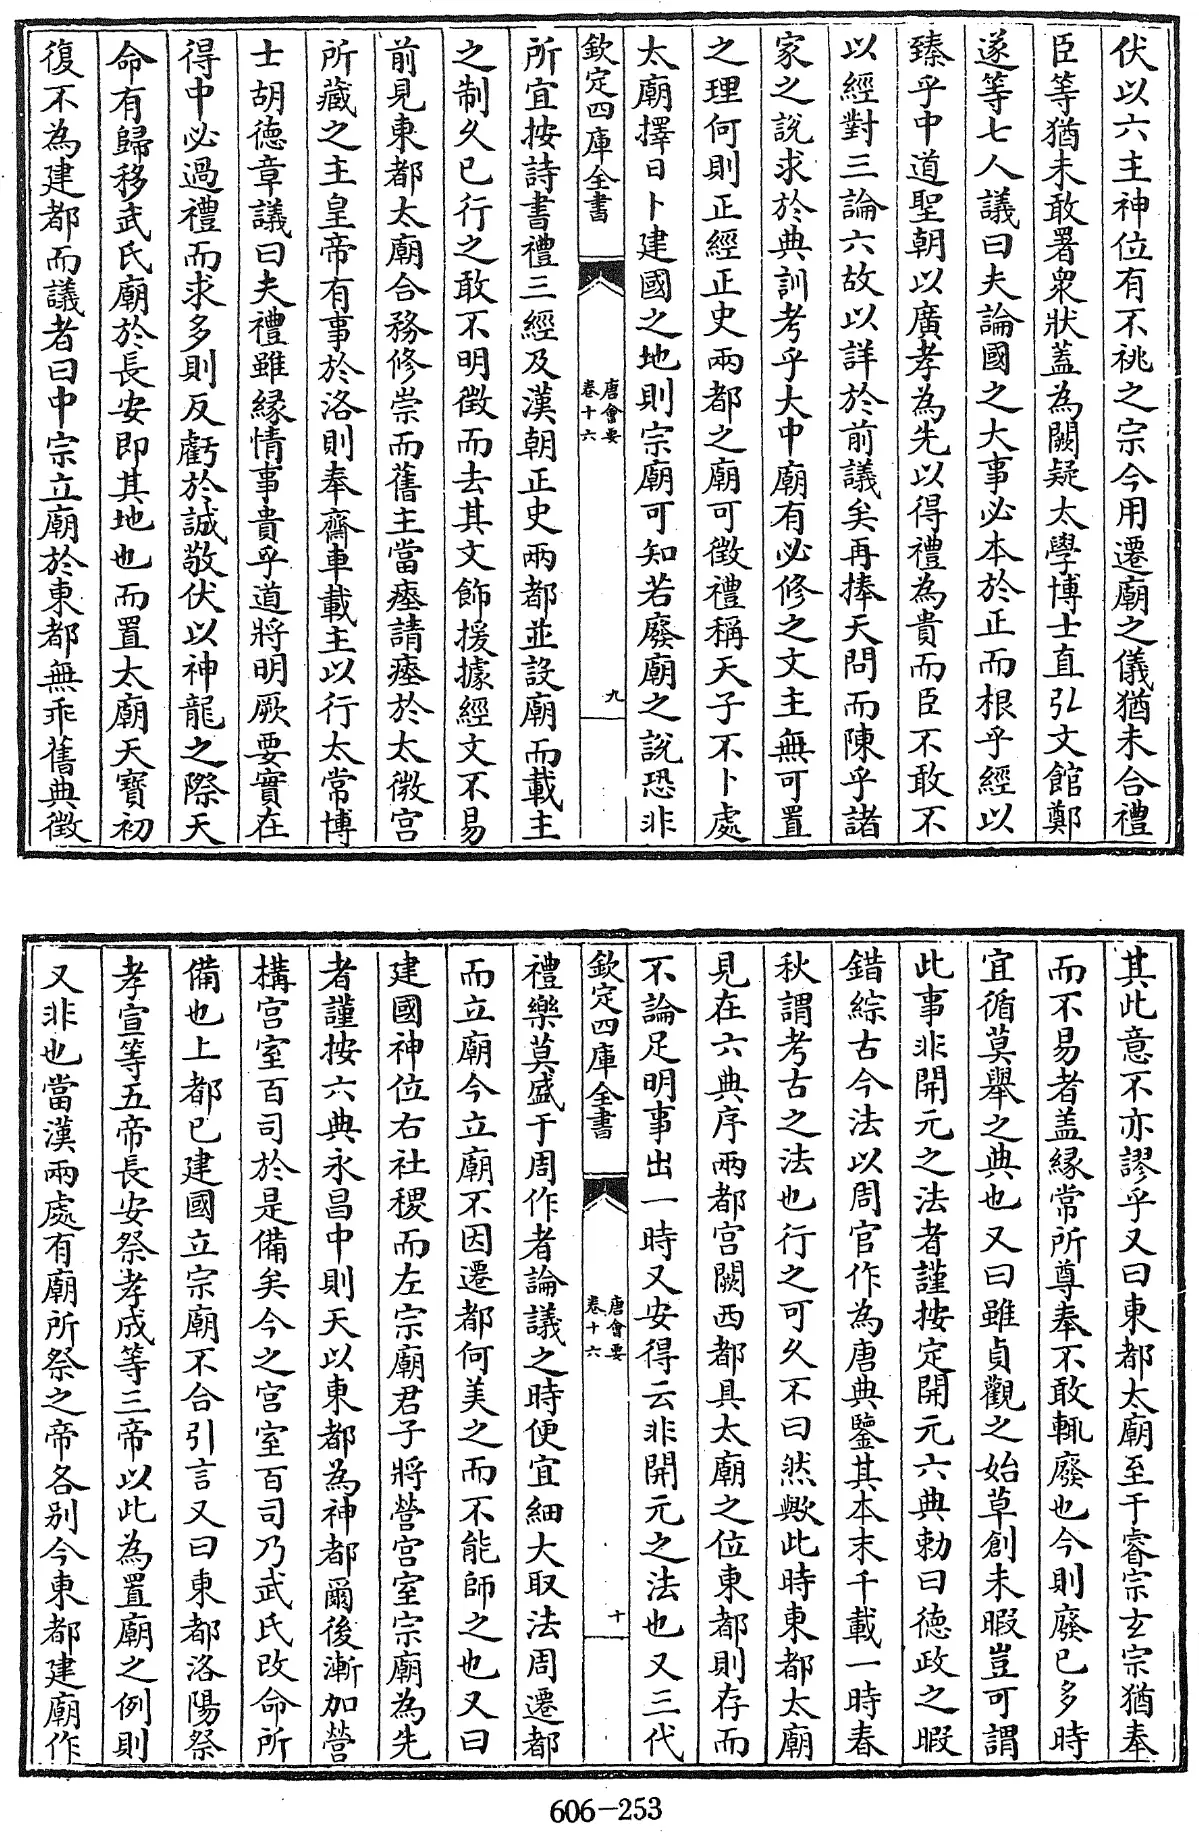 伏以六主神位有不祧之宗今用遷廟之儀猶未合禮
臣等猶未敢署衆狀蓋為闕疑太學博士直弘文館鄭
遂等七人議曰夫論國之大事必本於正而根乎經以
臻乎中道聖朝以廣孝為先以得禮為貴而臣不敢不
以經對三論六故以詳於前議矣再捧天問而陳乎諸
家之說求於典訓考乎大中廟有必修之文主無可置
之理何則正經正史兩都之廟可徵禮稱天子不卜處
太廟擇日卜建國之地則宗廟可知若廢廟之說恐非
欽定四庫全書
唐會要
卷十六
九
所宜按詩書禮三經及漢朝正史兩都並設廟而載主
之制久已行之敢不明徵而去其文飾援據經文不易
前見東都太廟合務修崇而舊主當瘞請瘞於太微宮
所藏之主皇帝有事於洛則奉齋車載主以行太常博
士胡德章議曰夫禮雖緣情事貴乎道將明厥要實在
得中必過禮而求多則反虧於誠敬伏以神龍之際天
命有歸移武氏廟於長安即其地也而置太廟天寶初
復不為建都而議者曰中宗立廟於東都無乖舊典徵
其此意不亦謬乎又曰東都太廟至于睿宗玄宗猶奉
而不易者盖緣常所尊奉不敢輒廢也今則廢已多時
宜循莫舉之典也又曰雖貞觀之始草創未暇豈可謂
此事非開元之法者謹按定開元六典勅曰德政之暇
錯綜古今法以周官作為唐典鑒其本末千載一時春
秋謂考古之法也行之可久不曰然歟此時東都太廟
見在六典序兩都宮闕西都具太廟之位東都則存而
不論足明事出一時又安得云非開元之法也又三代
欽定四庫全書
唐會要
卷十六
十
禮樂莫盛于周作者論議之時便宜細大取法周遷都
而立廟今立廟不因遷都何美之而不能師之也又曰
建國神位右社稷而左宗廟君子將營宮室宗廟為先
者謹按六典永昌中則天以東都為神都爾後漸加營
構宮室百司於是備矣今之宮室百司乃武氏改命所
備也上都已建國立宗廟不合引言又曰東都洛陽祭
孝宣等五帝長安祭孝成等三帝以此為置廟之例則
又非也當漢兩處有廟所祭之帝各别今東都建廟作
606-253